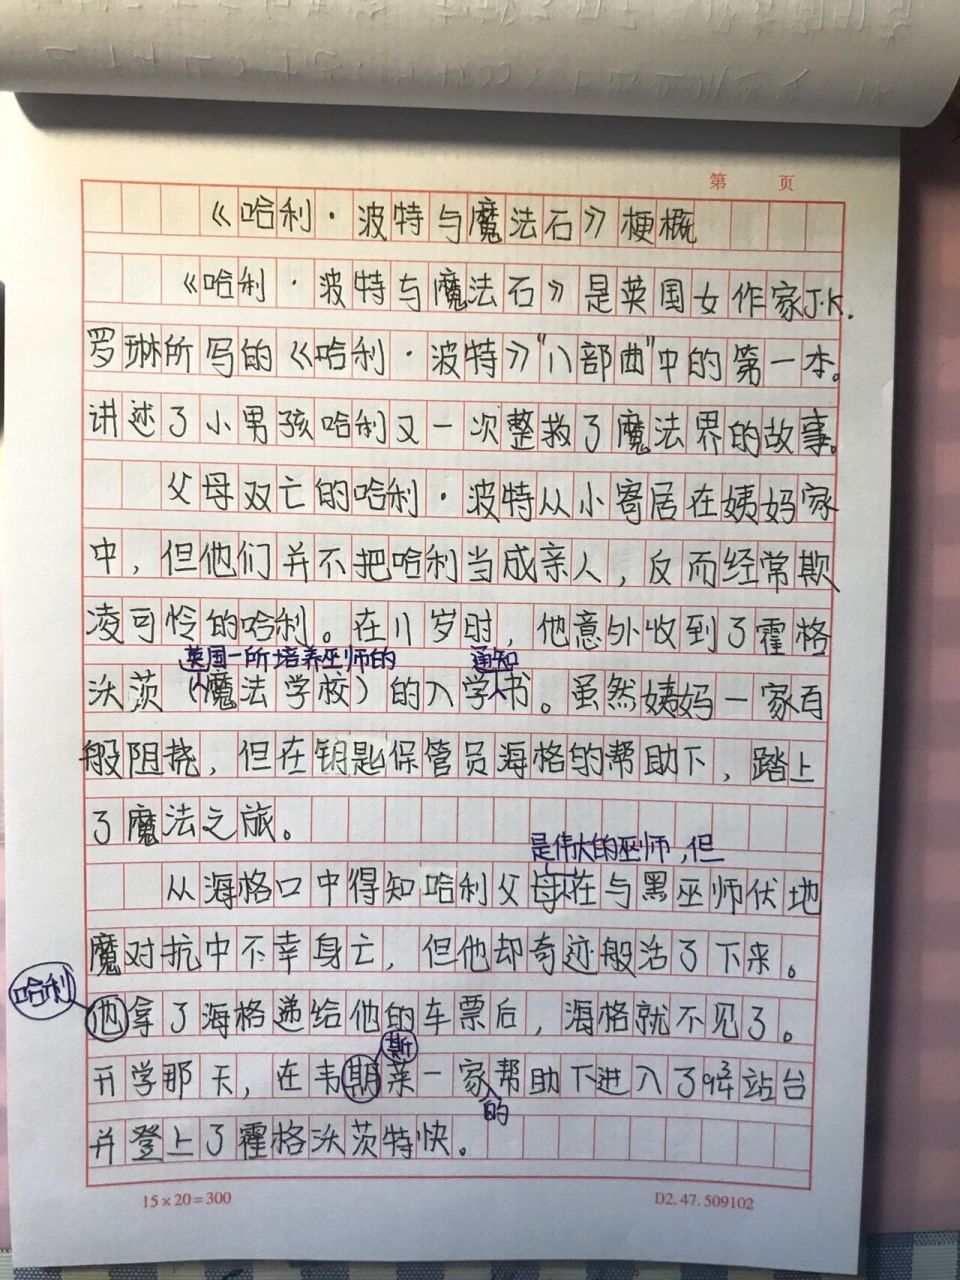 第 页
《哈利·波特与魔法石》梗概
《哈利·波特与魔法石》是英国女作家J.K.
罗琳所写的《哈利·波特》"八部曲"中的第一本。
讲述了小男孩哈利又一次整救了魔法界的故事。
父母双亡的哈利·波特从小寄居在姨妈家
中，但他们并不把哈利当成亲人，反而经常欺
凌可怜的哈利。在11岁时，他意外收到了霍格
英国一所培养巫师的 通知
沃茨（魔法学校）的入学书。虽然姨妈一家百
般阻挠，但在钥匙保管员海格的帮助下，踏上
了魔法之旅。
是伟大的巫师，但
从海格口中得知哈利父母在与黑巫师伏地
魔对抗中不幸身亡，但他却奇迹般活了下来。
哈利
他拿了海格递给他的车票后，海格就不见了。
斯
开学那天，在韦期莱一家帮助下进入了站台
的
并登上了霍格沃茨特快。
15×20=300 D2.47.509102